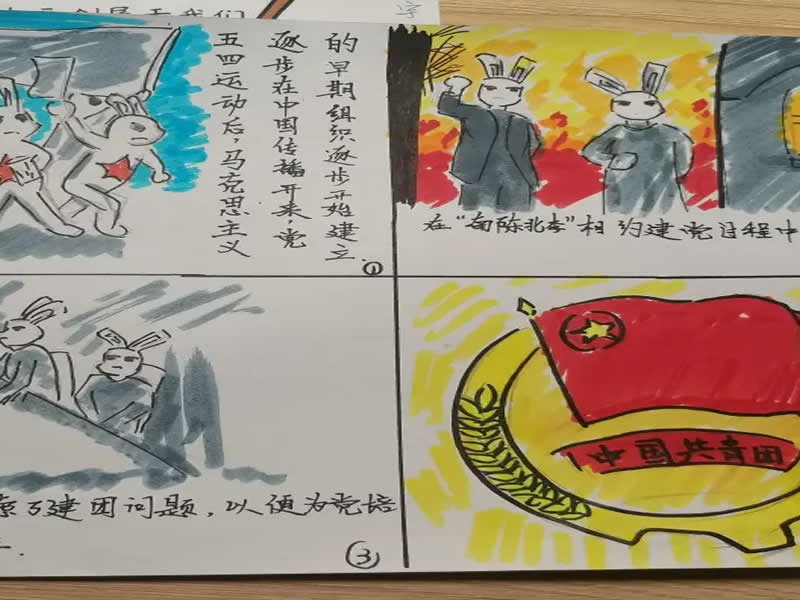 五四运动后，马克思主义
逐步在中国传播开来，党
的早期组织逐步开始建立.
①
在“南陈北李”相约建党日程中
了建团问题，以便为党培
③
中国共青团